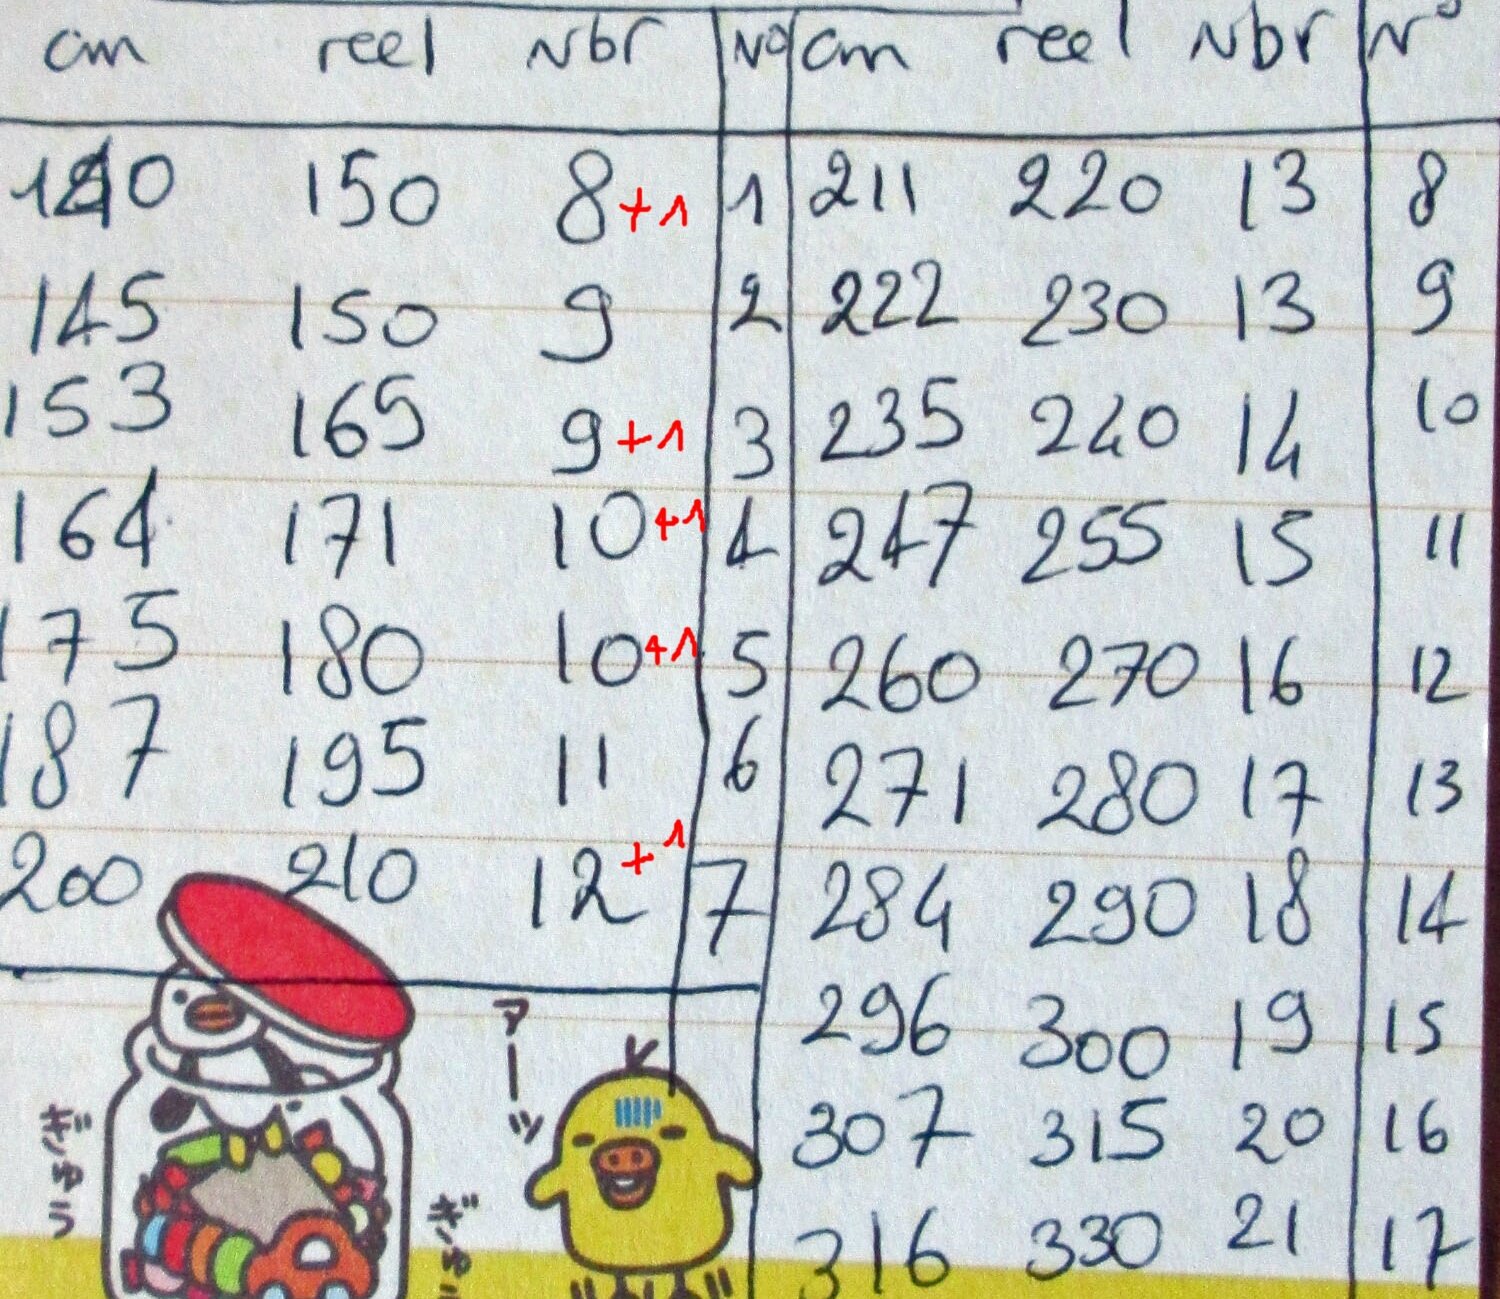 cm reel Nbr N° cm reel Nbr N°
140 150 8+1 1 211 220 13 8
145 150 9 2 222 230 13 9
153 165 9+1 3 235 240 14 10
164 171 10+1 4 247 255 15 11
175 180 10+1 5 260 270 16 12
187 195 11 6 271 280 17 13
200 210 12+1 7 284 290 18 14
296 300 19 15
307 315 20 16
316 330 21 17
アーッ
ぎゅう